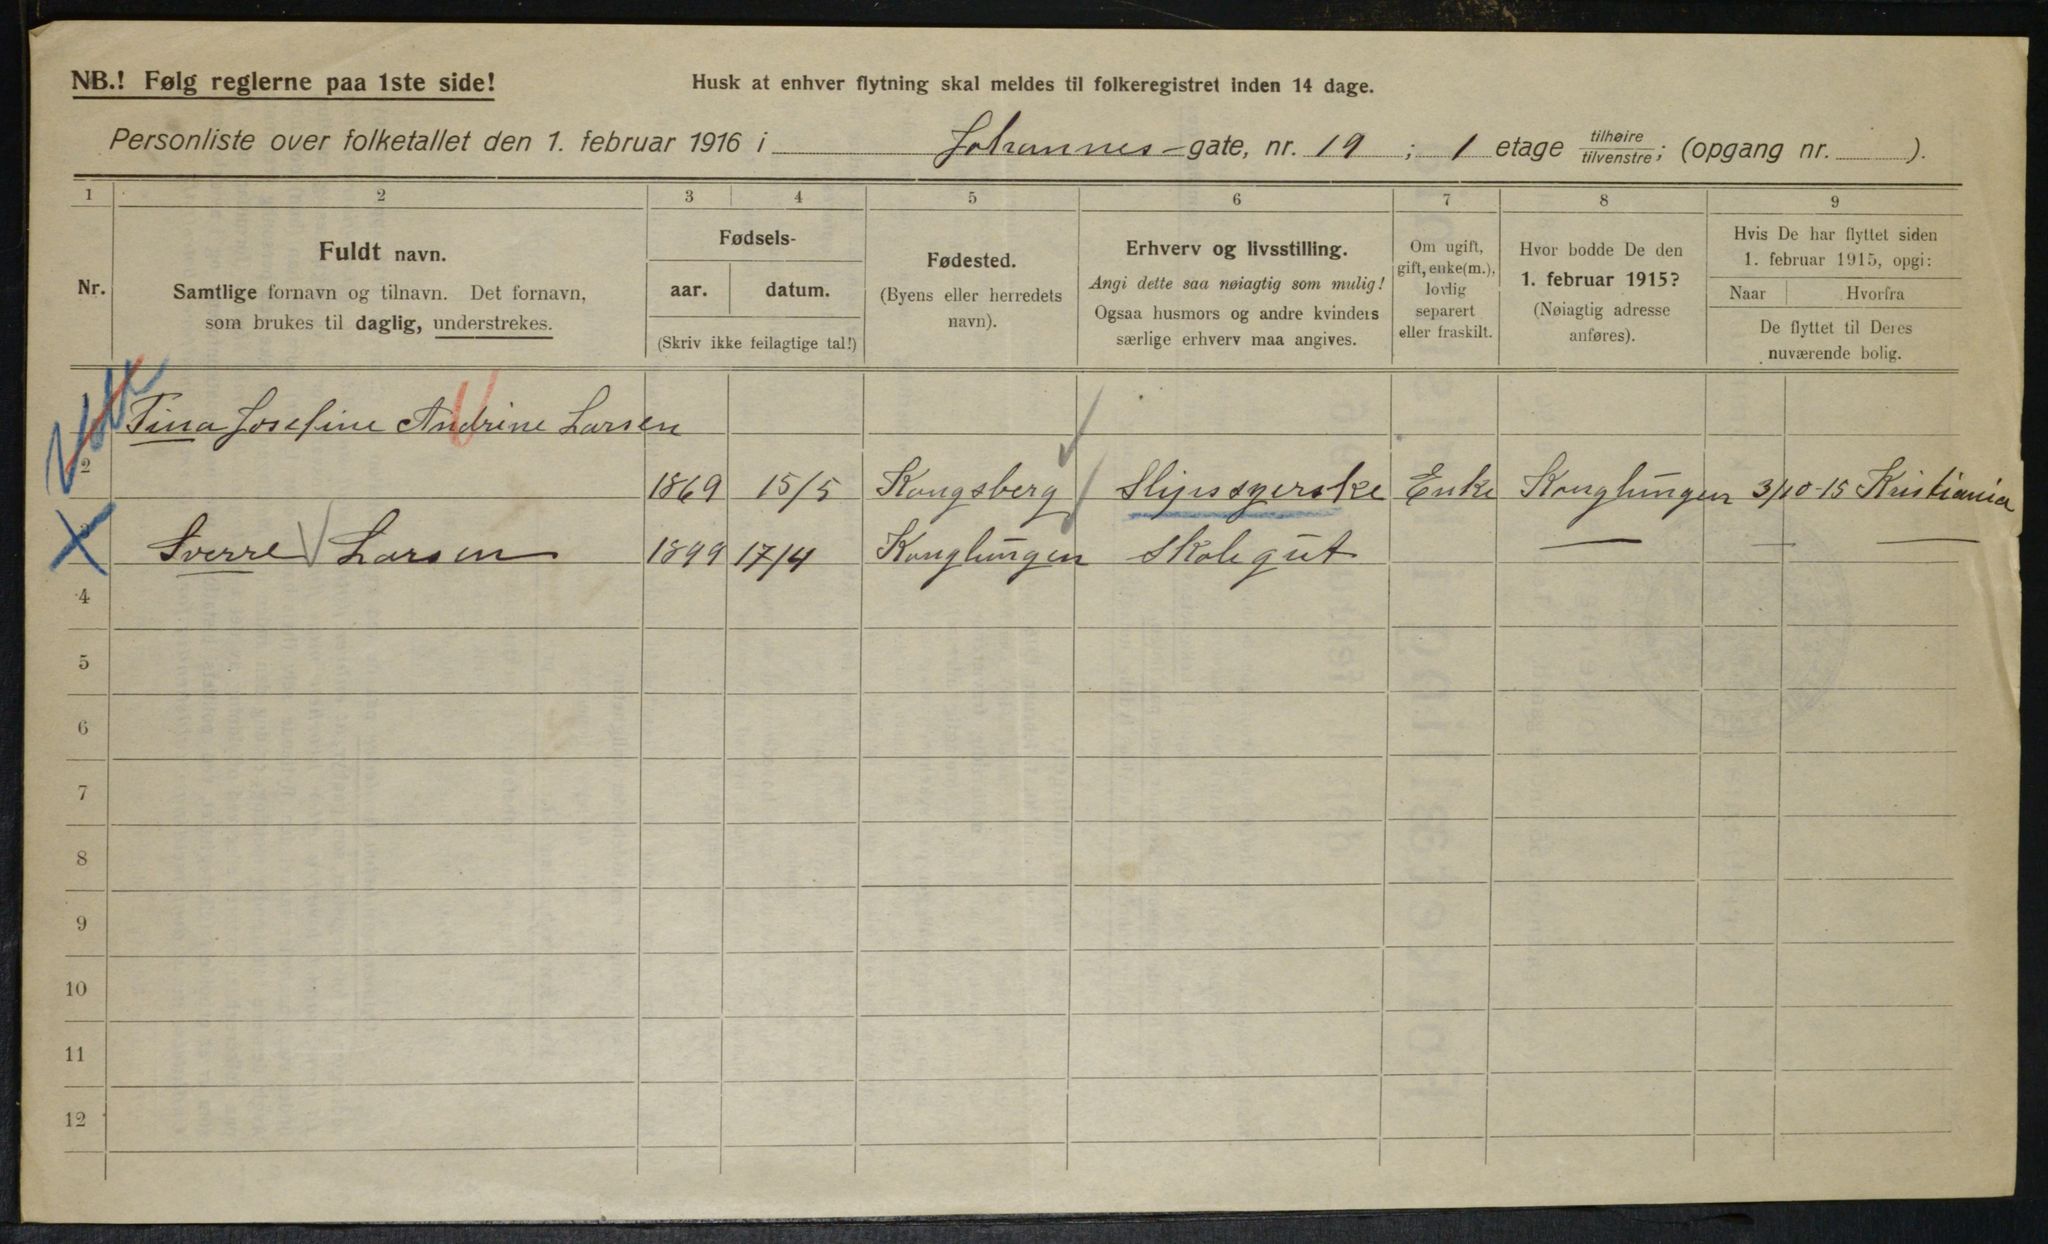 NB.! Følg reglerne paa 1ste side!
Husk at enhver flytning skal meldes til folkeregistret inden 14 dage.
Personliste over folketallet den 1. februar 1916 i Johannes-gate, nr. 19; 1 etage tilhøire/tilvenstre; (opgang nr. ).
1 2 3 4 5 6 7 8 9
Nr.
Fuldt navn.
Samtlige fornavn og tilnavn. Det fornavn,
som brukes til daglig, understrekes.
Fødsels-
aar. datum.
(Skriv ikke feilagtige tal!)
Fødested.
(Byens eller herredets
navn).
Erhverv og livsstilling.
Angi dette saa nøiagtig som mulig!
Ogsaa husmors og andre kvinders
særlige erhverv maa angives.
Om ugift,
gift, enke(m.),
lovlig
separert
eller fraskilt.
Hvor bodde De den
1. februar 1915?
(Nøiagtig adresse
anføres).
Hvis De har flyttet siden
1. februar 1915, opgi:
Naar Hvorfra
De flyttet til Deres
nuværende bolig.
Tina Josefine Andrine Larsen
2 1869 15/5 Kongsberg Slipssyerske Enke Konglungen 3/10-15 Kristiania
3 Sverre Larsen 1899 17/4 Konglungen Skolegut — — —
4
5
6
7
8
9
10
11
12